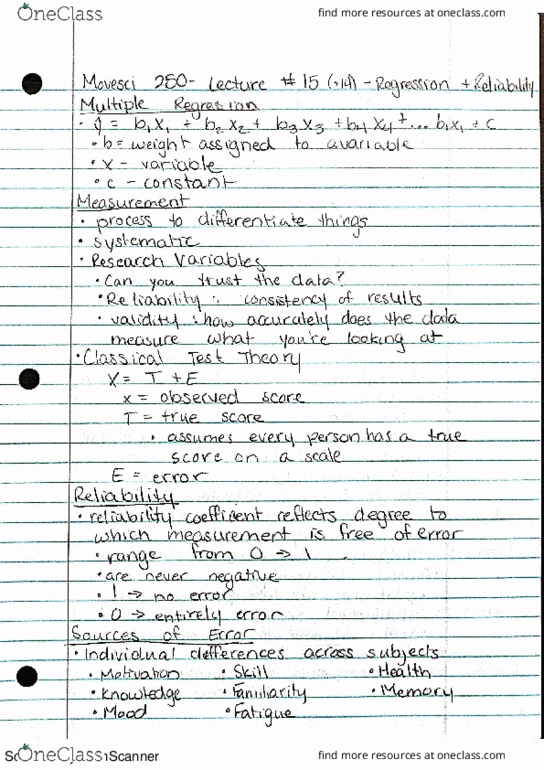 OneClass
find more resources at oneclass.com
Movesci 280- Lecture # 15 (.14) - Regression + Reliability
Multiple Regression
• ŷ = b₁x₁ + b₂x₂ + b₃x₃ + b₄x₄ + ... bᵢxᵢ + c
• b = weight assigned to a variable
• x - variable
• c - constant
Measurement
• process to differentiate things
• systematic
• Research Variables
• Can you trust the data?
• Reliability : consistency of results
• validity : how accurately does the data
measure what you're looking at
• Classical Test Theory
X = T + E
x = observed score
T = true score
• assumes every person has a true
score on a scale
E = error
Reliability
• reliability coefficient reflects degree to
which measurement is free of error
• range from 0 → 1
• are never negative
• 1 → no error
• 0 → entirely error
Sources of Error
• Individual differences across subjects
• Motivation • Skill • Health
• Knowledge • Familiarity • Memory
• Mood • Fatigue
OneClass Scanner
find more resources at oneclass.com